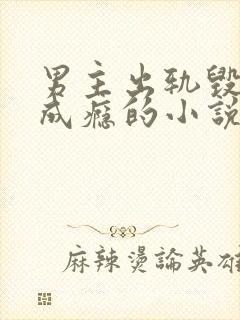 男主出轨毁
成瘾的小説
麻辣燙論英雄